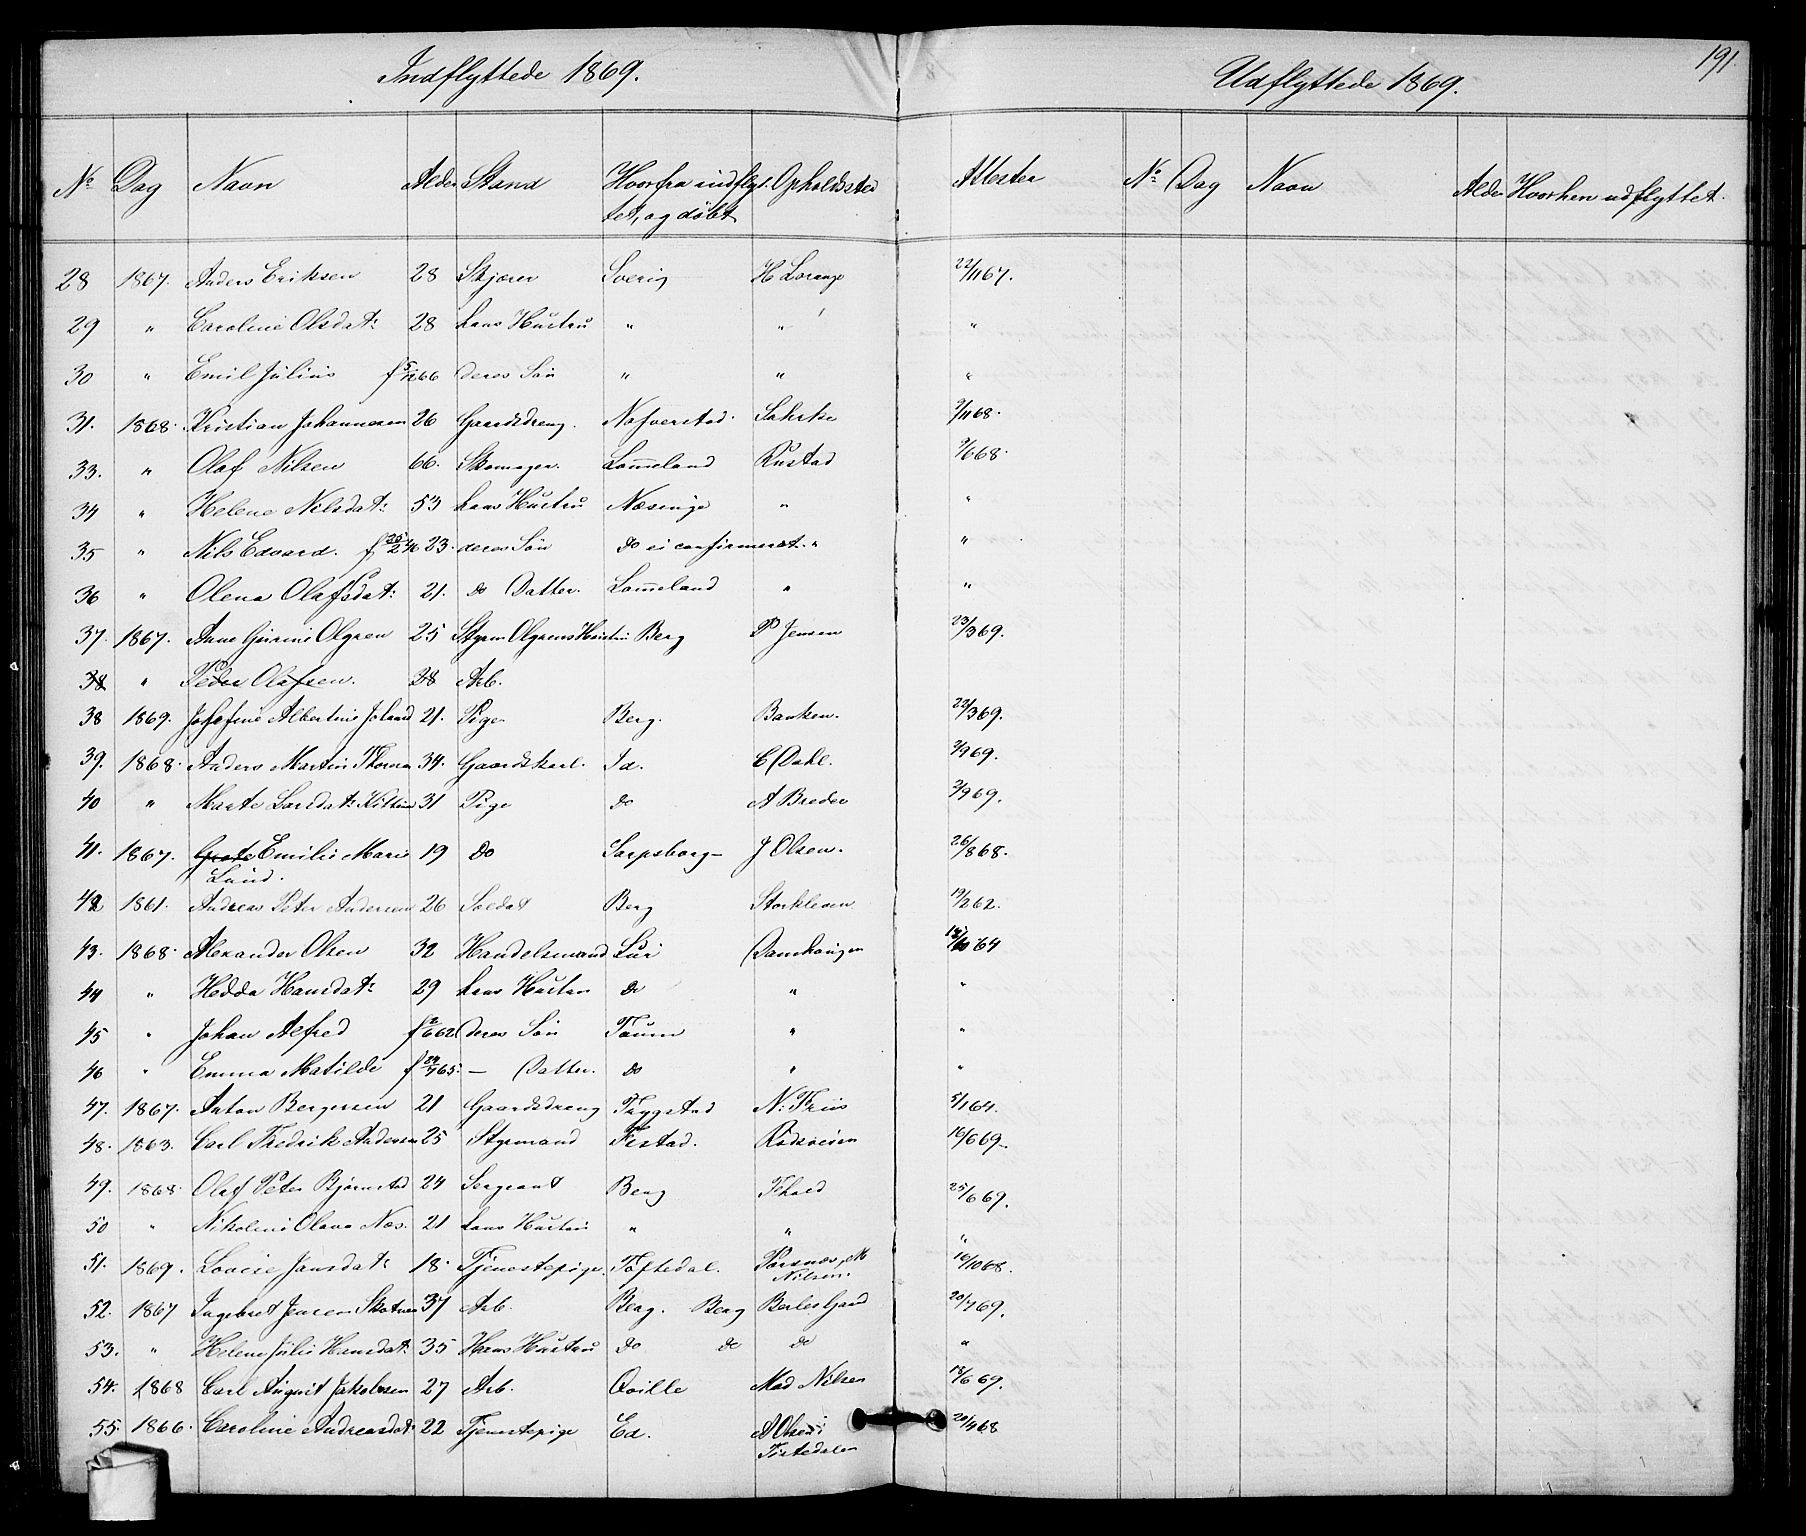 Indflyttede 1869.
Udflyttede 1869.
191
No Dag Navn Alder Stand Hvorfra indflyt- Opholdssted Attester No Dag Navn Alder Hvorhen udflyttet.
tet, og døbt
28 1867. Anders Eriksen 28 Skjærer Sverig H Lorange 22/11 67.
29 " Caroline Olsdat: 28 hans Hustru " " "
30 " Emil Julius f 5/12 66 deres Søn " " "
31. 1868. Kristian Johannesen 26 Gaardsdreng. Nafverstad. 9/11 68.
33. " Olaf Nilsen 66. Skomager. Lom̅eland Rustad 9/6 68.
34 " Helene Nilsdat: 53 hans Hustru Næsinge " "
35 " Nils Edvard. f 25/2 46 23. deres Søn do ei confirmeret. " "
36 " Olena Olafsdat: 21. do Datter. Lom̅eland " "
37. 1867. Anne Gurine Olgren 25 Styrm Olgrens Hustru Berg P Jensen 23/3 69.
38 " Peder Olafsen. 38 Arb.
38 1869. Josefine Albertine 21. Pige Berg. Banken. 23/3 69.
39. 1868. Anders Martin 34. Gaardskarl. Id. C Dahl. 2/9 69.
40 " Marte Larsdat: 31 Pige do A Breder 2/9 69.
41. 1867. Grete Emilie Marie 19 do Sarpsborg J Olsen. 26/8 68.
Lund.
42 1861. Andreas Peter Andersen 26 Soldat Berg Storkleven 19/2 62.
43. 1868. Alexander Olsen 32 Handelsmand Lur Damhaugen 64
44 " Hedda Hansdat: 29 hans Hustru do " "
45 " Johan Alfred f 2/6 62 deres Søn Toum " "
46 " Emma Matilde f 24/7 65. — Datter. do " "
47. 1867. Anton Bergersen 21 Gaardsdreng Trygstad N: Friis 5/1 64.
48. 1863. Carl Fredrik Andersen 25 Styrmand Rødsveien 16/6 69.
49. 1868. Olaf Peter Bjørnstad 24 Sergeant Berg 25/6 69.
50 " Nikoline Olava Næs. 21 hans Hustru " " "
51. 1869. Lovise Jansdat: 18. Tjenestepige. Töftedal. M 16/10 68.
Nilsen.
52. 1867 Ingebret Jensen 37 Arb. Berg. Berg 20/7 69.
53. " Helene Julie Hansdat: 35 Hans Hustru do do do "
54. 1868 Carl August Jakobsen 27 Arb. Qville Mad Nilsen 18/6 69.
55. 1866. Caroline Andreasdat: 22 Tjenestepige Ed. A Olsen i 20/4 68
Tistedalen